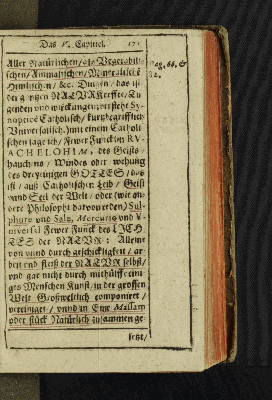 Das V. Capittel. 171
Aller Natürlichen/ als Vegetabili-
schen/ Animalischen/ Mineralische
Himlischen/ &c. Dingen/ das ist
der gantzen NATVR kreffte/ Tu-
genden vnd wirckungen verstehe Sy-
nopticè Catholisch/ kurtzbegrifflich
Vniversalisch/) mit einem Catholi-
schen Fewer Funcklin RV-
ACHELOHIM, des Geists
hauchens/ Windes oder wehung
des dreyeinigen GOTTES/ das
ist/ auß Catholischer Leib/ Geist
vnnd Seel der Welt/ oder (wie an-
dere Philosophi darvon reden) Sul-
phure vnd Sale, Mercurio vnd V-
niversal Fewer Funck des LIECH-
TES der NATVR: Alleine
von vnnd durch geschickligkeit/ ar-
beit vnd fleiß der NATVR selbst/
vnd gar nicht durch mithülffe eini-
ges Menschen Kunst/ in der grossen
Welt Großweltlich componiret/
vereiniget/ vnnd in Eine Massam
oder stück Natürlich zusammen ge-
setzt/
pag. 66, &